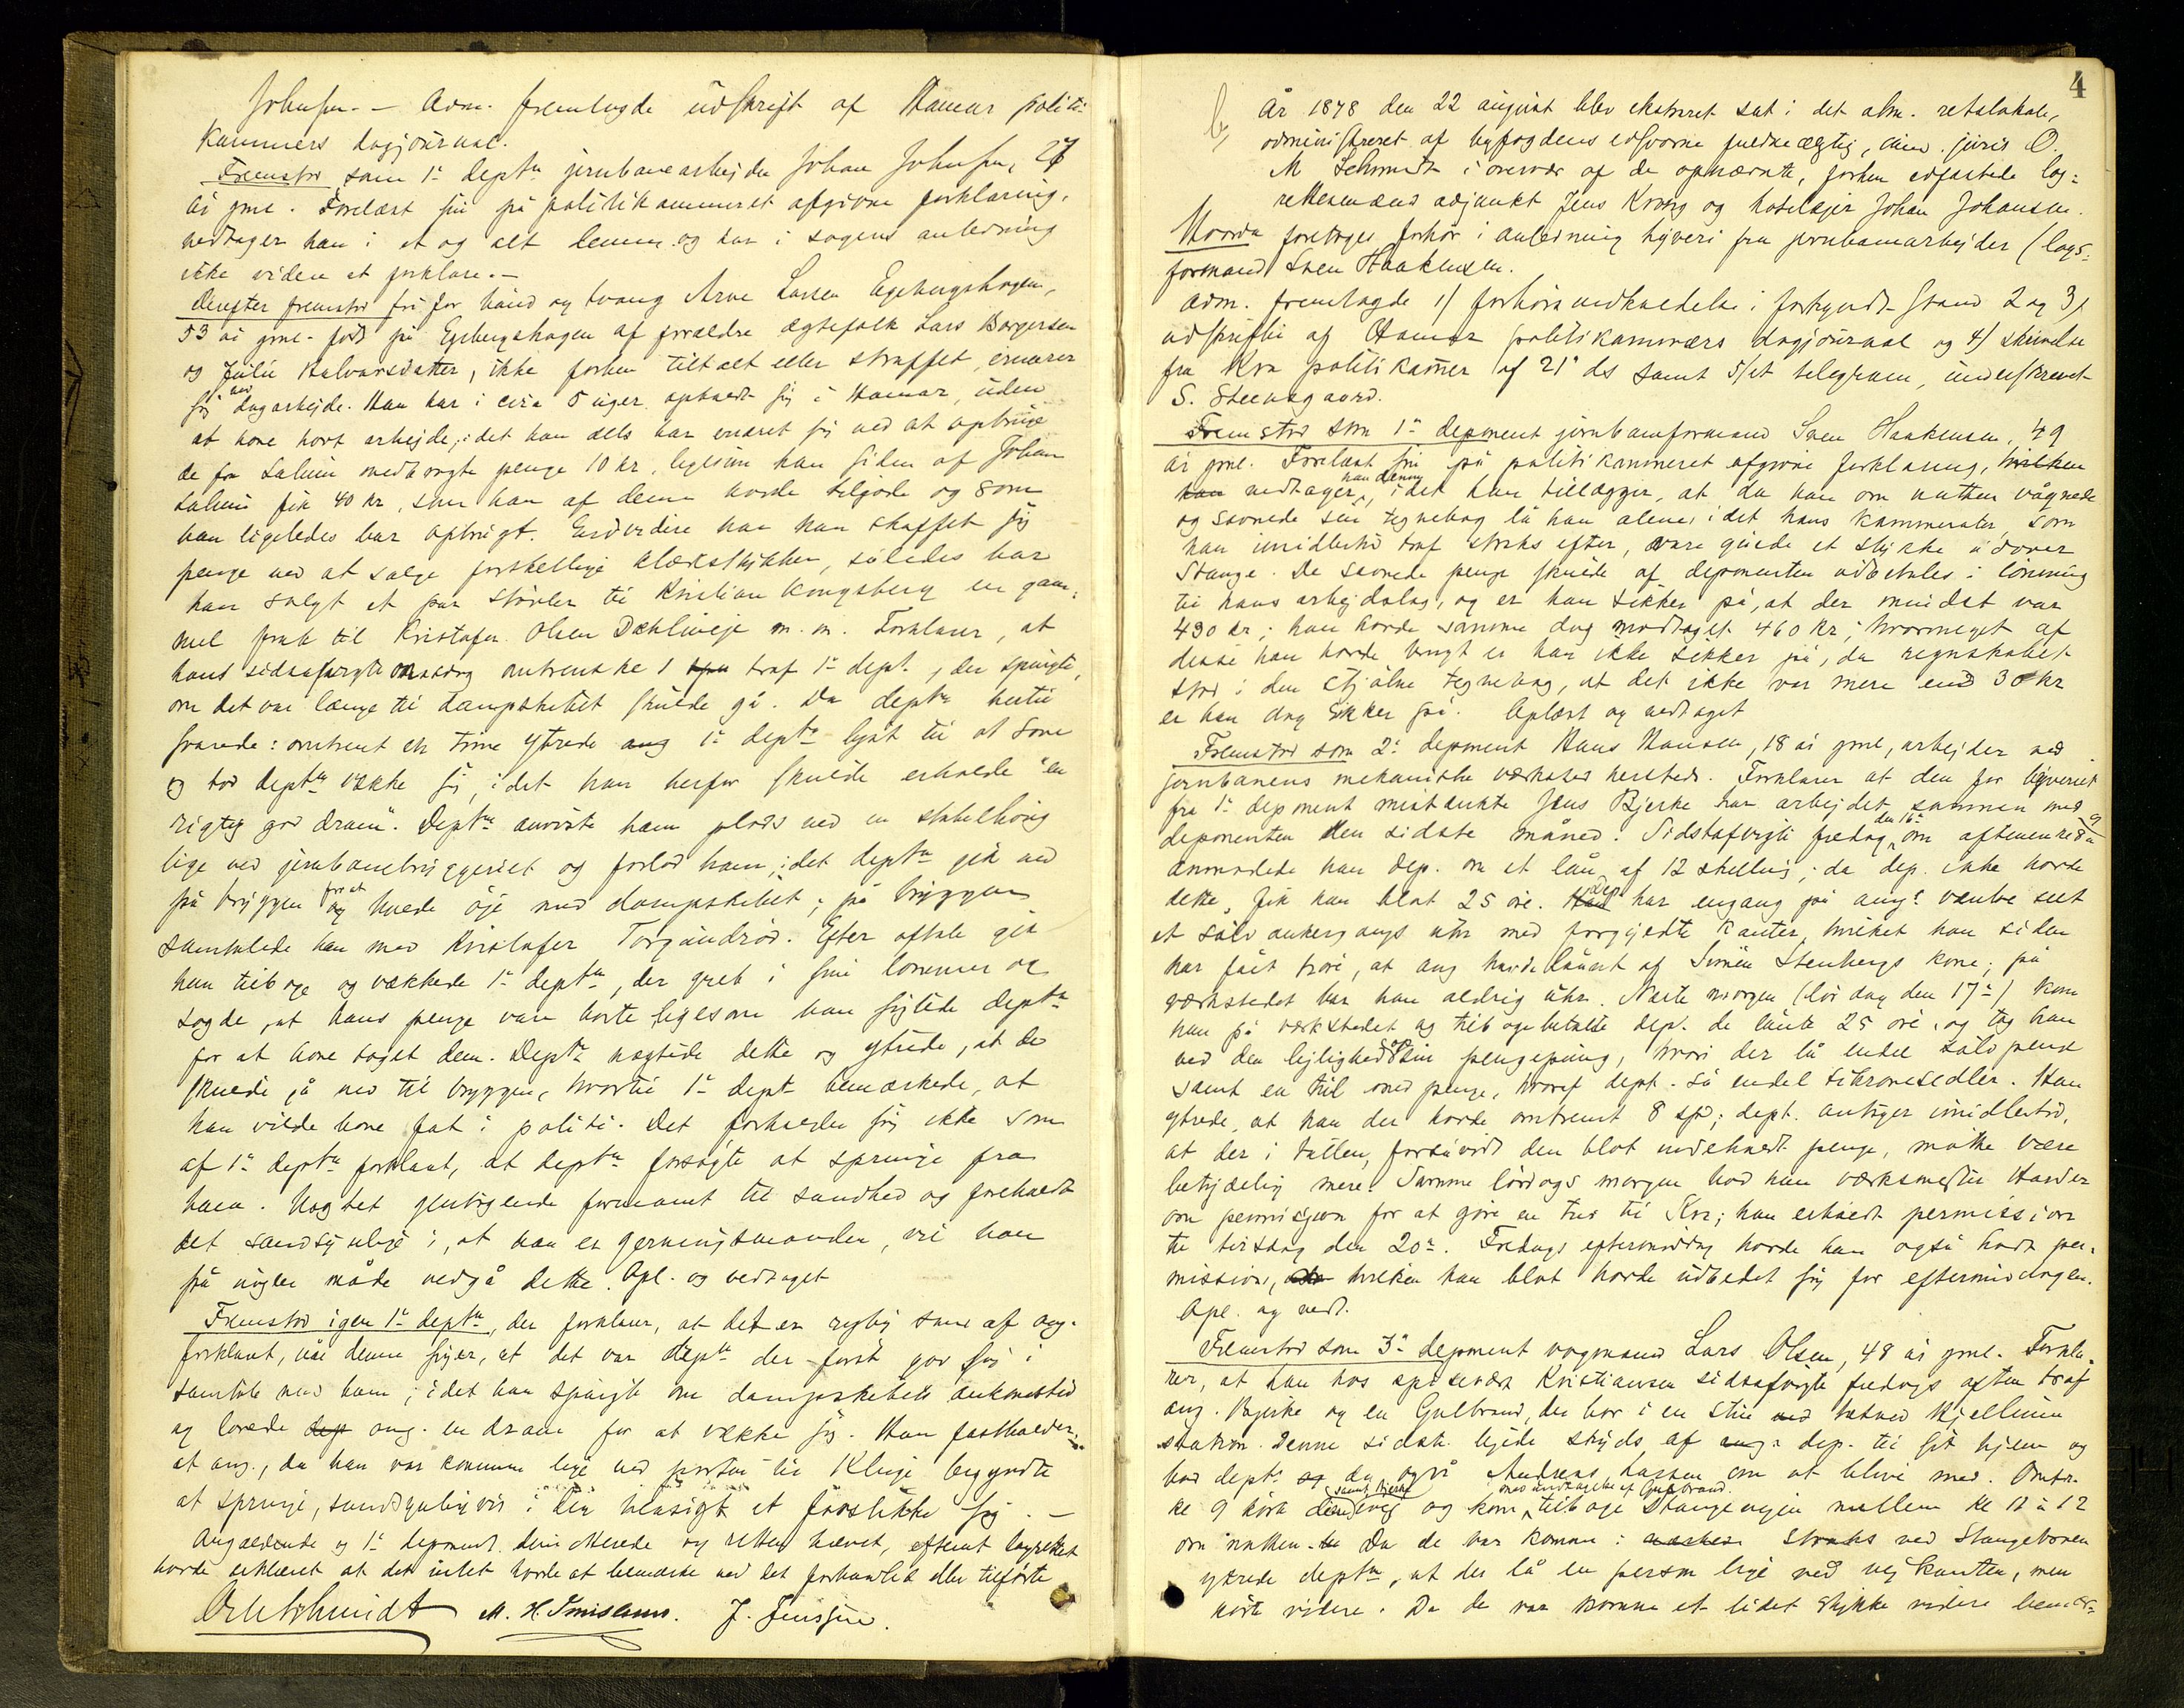 Johnsen. — Adm. fremlagde udskrift af Hamar politi-
kammers dagjournal.
Fremstod som 1ste deptn jernbanearbejder Johan Johnsen, 27
år gml. Forelæst sin på politikammeret afgivne forklaring,
vedtager han i et og alt denne og har i sagens anledning
ikke videre at forklare. —
Derefter fremstod fri for bånd og tvang Arne Larsen Egebergshagen,
53 år gml. født på Egebergshagen af forældre ægtefolk Lars Borgersen
og Julie Halvorsdatter, ikke forhen tiltalt eller straffet, ernærer
sig ved dagarbejde. Han har i cirka 5 uger opholdt sig i Hamar, uden
at have havt arbejde, idet han dels har ernæret sig ved at opbruge
de fra medbragte penge 10 kr, ligesom han siden af Johan
fik 40 kr, som han af denne havde tilgode og som
han ligeledes har opbrugt. Endvidere har han skaffet sig
penge ved at sælge forskellige klædestykker, således har
han solgt et par støvler til Kristian Kongsberg en gam-
mel frak til Kristofer Olsen Dæhlineje m. m. Forklarer, at
hans sidstafvigte onsdag omtrent kl 1 traf 1ste dept, der spurgte,
om det var længe til dampskibet skulde gå. Da deptn hertil
svarede: omtrent en time ytrede ang 1ste deptn lyst til at sove
og bad deptn vække sig, idet han herfor skulde erholde "en
rigtig god dram". Deptn anviste ham plads ved en stabelhaug
lige ved jernbanebryggeriet og forlod ham, idet deptn gik ned
på bryggen for at holde øje med dampskibet; på bryggen
samtalede han med Kristofer Torgundrød. Efter aftale gik
han tilbage og vækkede 1ste deptn, der greb i sine lommer og
sagde, at hans penge vare borte ligesom han sigtede deptn
for at have taget dem. Deptn nægtede dette og ytrede, at de
skulde gå ned til bryggen, hvortil 1ste deptn bemærkede, at
han vilde have fat i politi. Det forholder sig ikke som
af 1ste deptn forklart, at deptn forsøgte at springe fra
ham. Uagtet gjentagende formanet til sandhed og foreholdt
det sandsynlige i, at han er gerningsmanden, vil han
på ingen måde vedgå dette. Opl. og vedtaget
Fremstod igen 1ste deptn, der forklarer, at det er rigtig som af ang.
forklart, når denne siger, at det var deptn der først gav sig i
samtale med ham, idet han spurgte om dampskibets ankomsttid
og lovede dep ang. en dram for at vække sig. Han fastholder,
at ang., da han var kommen lige ved porten til Kluge begyndte
at springe, sandsynligvis i den hensigt at forstikke sig. —
Angældende og 1ste deponent dimitterede og retten hævet, efterat lagrettet
havde erklæret at det intet havde at bemærke ved det forhandlede eller tilførte
O M Schmidt M. H. J. Jenssen.
4
b,
År 1878 den 22 august blev ekstraret sat i det alm. retslokale,
administreret af byfogdens edsvorne fuldmægtig, cand. juris O.
M Schmidt i overvær af de opnævnte, forhen edfæstede lag-
rettesmænd adjunkt Jens Kraag og hotelejer Johan Johansen.
Hvorda foretoges forhør i anledning tyveri fra jernbanearbejder (lags-
formand Sven Haakensen.
Adm. fremlagde 1/ forhørsmeddelelse i forkyndt stand 2 og 3/
udskrifter af Hamar politikammers dagjournal og 4/ skrivelse
fra Kra politikammer af 21de ds samt 5/ et telegram, underskrevet
S. Steensgaard.
Fremstod som 1ste deponent jernbaneformand Sven Haakensen, 49
år gml. Forelæst sin på politikammeret afgivne forklaring, hvilken
han vedtager han denne, idet han tillægger, at da han om natten vågnede
og savnede sin tegnebog lå han alene, idet hans kammerater, som
han imidlertid traf straks efter, vare gåede et stykke udover
Stange. De savnede penge skulde af deponenten udbetales i lønning
til hans arbejdslag, og er han sikker på, at der mindst var
430 kr; han havde samme dag modtaget 460 kr; hvormeget af
disse han havde brugt er han ikke sikker på, da regnskabet
stod i den stjålne tegnebog, at det ikke var mere end 30 kr
er han dog sikker på. Oplæst og vedtaget
Fremstod som 2den deponent Hans Hansen, 18 år gml, arbejder ved
jernbanens mekaniske værksted hersteds. Forklarer at den for tyveriet
fra 1ste deponent mistænkte Jens Bjerke har arbejdet sammen med
deponenten den sidste måned. Sidstafvigte fredag den 16de om aftenen
anmodede han dep. om et lån af 12 skilling; da dep. ikke havde
dette, fik han blot 25 øre. Dep har engang på ang's væske seet
et sølv ankergangs uhr med forgyldte kanter, hvilket han siden
har fået høre, at ang havde lånt af Simen Stenbergs kone; på
værkstedet har han aldrig uhr. Næste morgen (lørdag den 17de) kom
han på værkstedet og tilbagebetalte dep. de lånte 25 øre, og tog han
ved den lejlighed op sin pengepung, hvori der lå endel sølvpenge
samt en til med penge, hvoraf dept. så endel tikronesedler. Han
ytrede, at han der havde omtrent 8 spd; dept. antager imidlertid,
at der i rullen, forsåvidt den blot indeholdt penge, måtte være
betydelig mere. Samme lørdags morgen bad han værksmester Harder
om permission for at gøre en tur til Kra; han erholdt permission
til tirsdag den 20de. Fredags eftermiddag havde han også havt per-
mission, hvilken han blot havde udbedet sig for eftermiddagen.
Opl. og vedt.
Fremstod som 3die deponent vognmand Lars Olsen, 48 år gml. Forkla-
rer, at han hos spisevært Kristiansen sidstafvigte fredags aften traf
ang. Bjerke og en Gulbrand, der bor i en stue ved Kjellerum
station. Denne sidste lejede skyds af dep. til sit hjem og
bad deptn da også Andreas Larsen om at blive med. Omtr.
kl 9 kørte samt Bjerke og kom med undtagelse af Gulbrand tilbage Stangevejen mellem kl 11 a 12
om natten. Da de var komne i straks ved Stangebroen
ytrede deptn, at der lå en person lige ved vejkanten, men
kørte videre. Da de var komne et lidet stykke videre bemær-